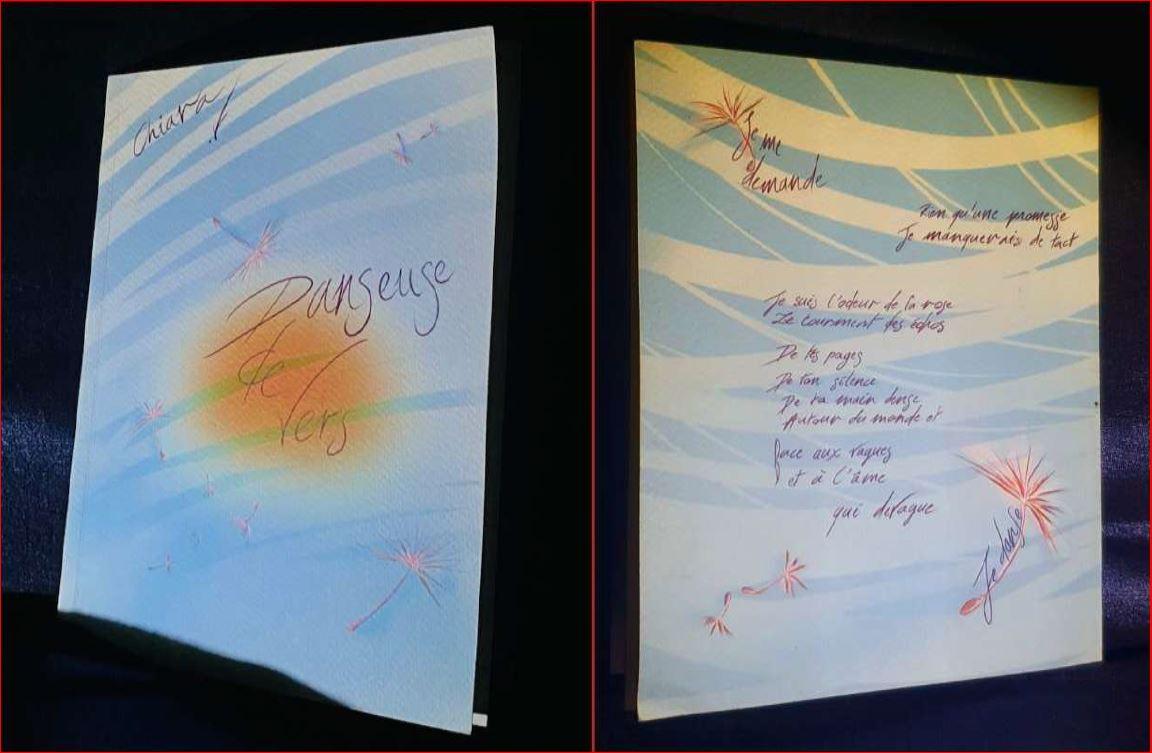 Chiara !
Danseuse
de
Vers
Je me
demande
Rien qu'une promesse
Je manquerais de tact
Je suis l'odeur de la rose
Le tourment des échos
De tes pages
De ton silence
De ta main dense
Autour du monde et
face aux vagues
et à l'âme
qui divague
Je danse